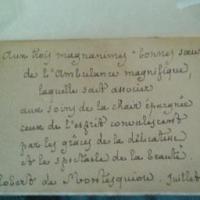 Aux trois magnanimes bonnes sœurs
de l'Ambulance magnifique,
laquelle sait associer
aux soins de la chair épargnée
ceux de l'esprit convalescent
par les grâces de la délicatesse
et le spectacle de la beauté.
Robert de Montesquiou Juillet